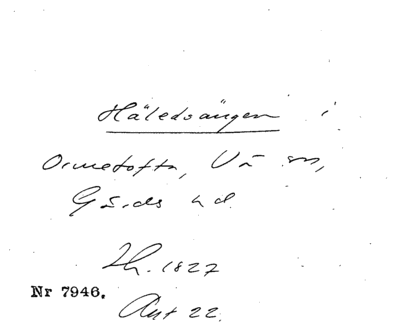 Häledsängen i
Ormetofta, Vä sn,
Gärds hd.
Lh. 1827
Nr 7946.
Akt 22.